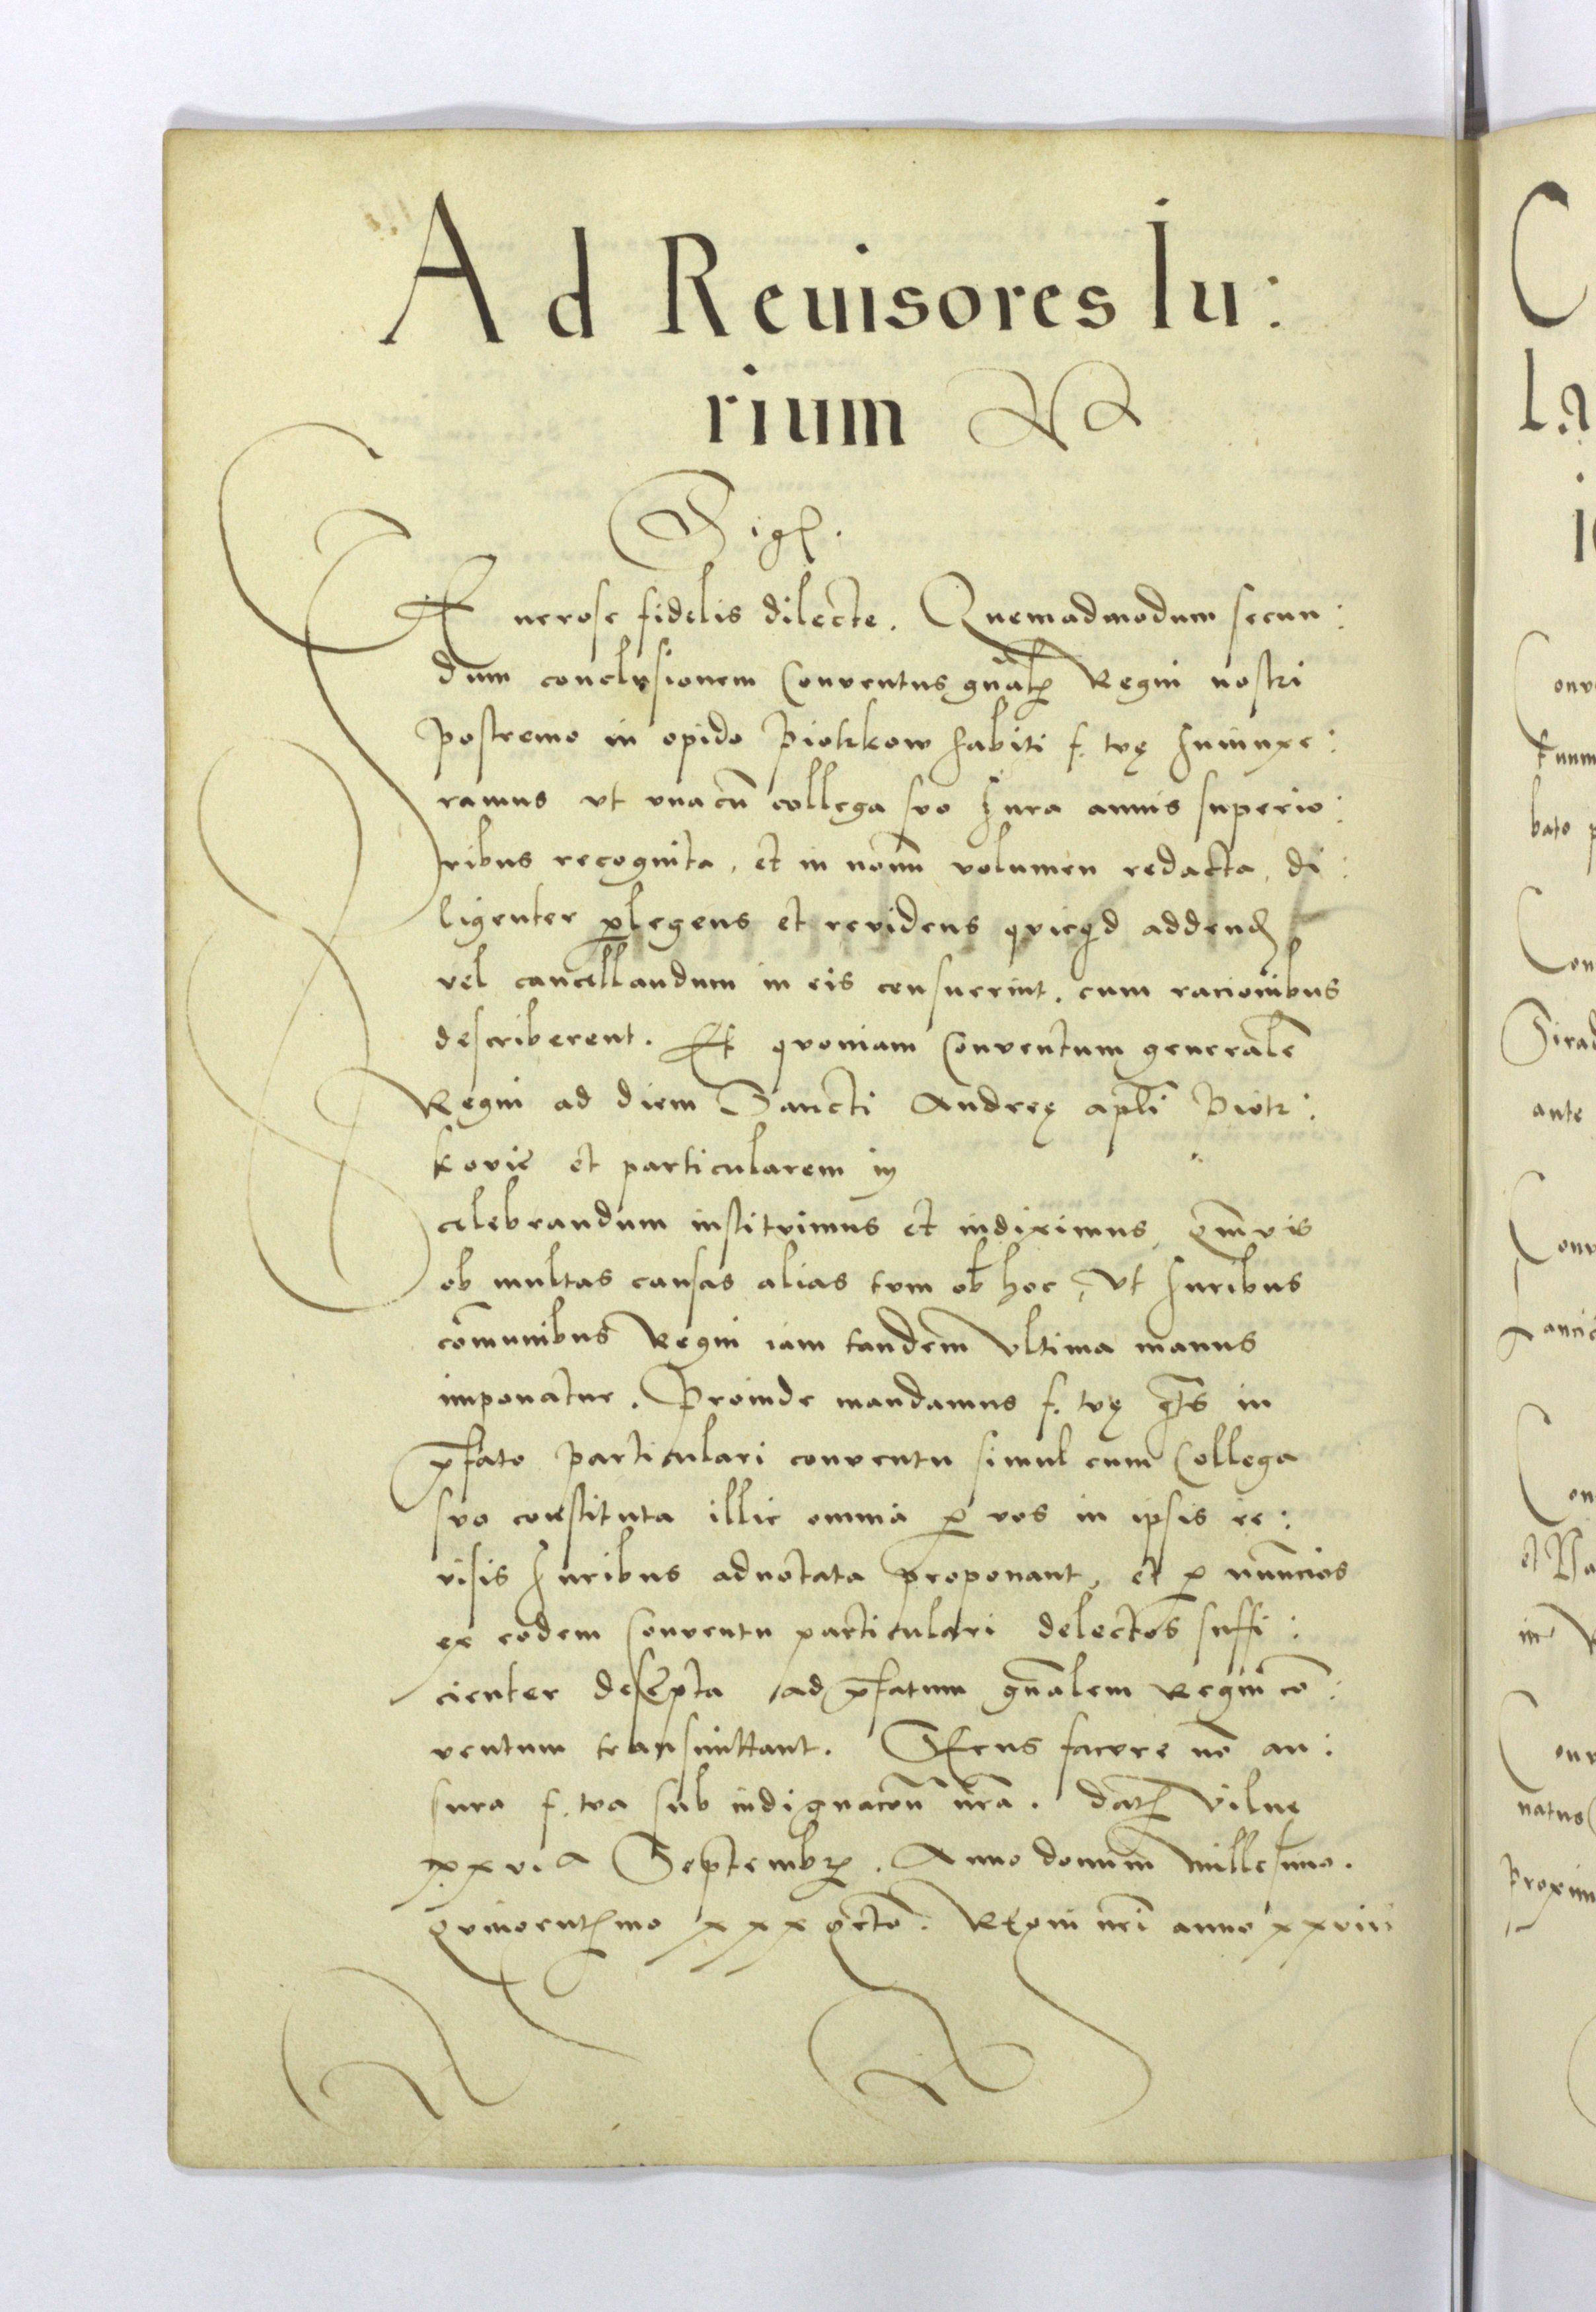 Ad Reuisores Iu:
rium
Sigs.
Generose fidelis dilecte. Quemadmodum secun:
dum conclusionem Conventus gñal Regni nostri
postremo in opido Piotrkow habiti f. tvę Iniunxe:
ramus vt vna cũ collega svo Iura annis superio:
ribus recognita, et in novũ volumen redacta, di:
ligenter plegens et revidens qvicqd addend
vel cancellandum in eis censuerint, cum racionibus
describerent. Et qvoniam Conventum generale
Regni ad diem Sancti Andreę apli Piotr:
kovie et particularem in
celebrandum institvimus et indiximus, qmvis
ob multas causas alias tvm ob hoc, Vt Iuribus
cõmunibus Regni iam tandem Vltima manus
imponatur. Proinde mandamus f. tvę qts in
pfato particulari conventu simul cum Collega
svo constituta illic omnia p vos in ipsis re:
visis Iuribus adnotata proponant, et p nuncios
ex eodem Conventu particulari delectos suffi:
cienter descripta ad pfatum gñalem Regni cõ:
ventum transmittant. Secus facere nõ au:
sura f. tva sub indignacoñ nra. dat Vilnę
xxv.a Septembr. Anno domini millesimo.
qvingentmo xxx octo. Regni nri anno xxviii